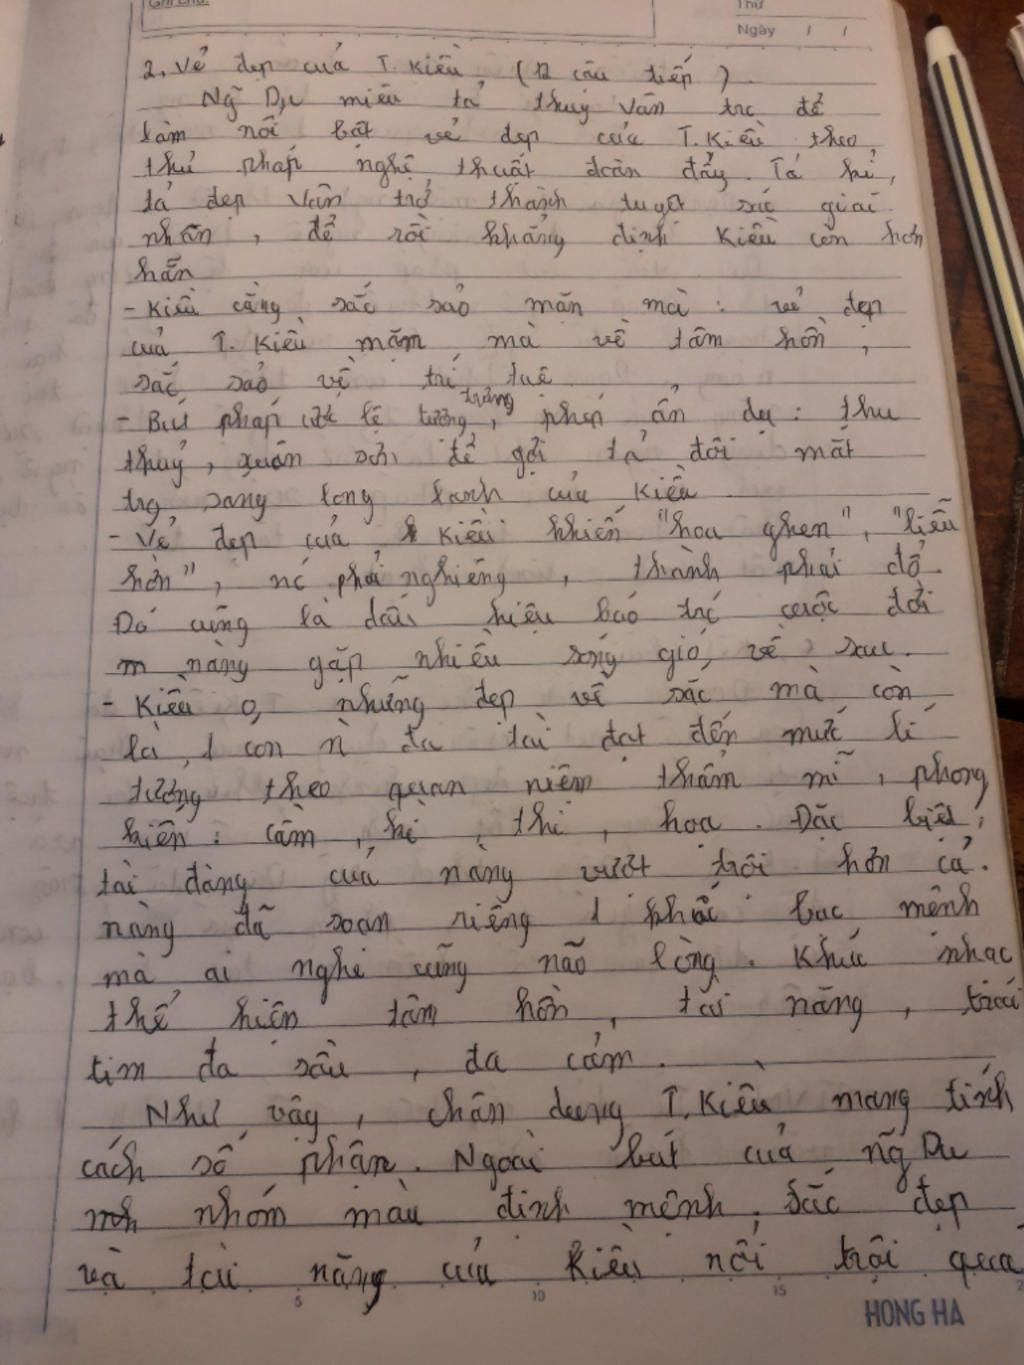 Ghi chú:
Thứ
Ngày / /
2, Vẻ đẹp của T. Kiều (12 câu tiếp).
Ng~ Du miêu tả Thuý Vân trc để
làm nổi bật vẻ đẹp của T. Kiều theo
thủ pháp nghệ thuật đoàn đẩy. Tả kỉ,
tả đẹp Vân trở thành tuyệt sắc giai
nhân, để rồi khẳng định Kiều còn hơn
hẳn
- Kiều càng sắc sảo mặn mà: vẻ đẹp
của T. Kiều mặm mà về tâm hồn,
sắc sảo về trí tuệ
- Bút pháp ước lệ tượng trưng, phép ẩn dụ: thu
thuỷ, xuân sơn để gợi tả đôi mắt
trg sáng long lanh của Kiều
- Vẻ đẹp của Kiều khiến "hoa ghen", "liễu
hờn", nc phải nghiêng, thành phải đổ.
Đó cũng là dấu hiệu báo trc cuộc đời
nàng gặp nhiều sóng gió, về sau.
- Kiều o, những đẹp về sắc mà còn
là 1 con n đa tài đạt đến mức lí
tưởng theo quan niệm thẩm mĩ, phong
kiến: cầm, kì, thi, hoạ. Đặc biệt,
tài đàng của nàng vượt trội hơn cả.
nàng đã soạn riêng 1 khúc bạc mệnh
mà ai nghe cũng não lòng. Khúc nhạc
thể hiện tâm hồn, tài năng, trái
tim đa sầu, đa cảm.
Như vậy, chân dung T. Kiều mang tính
cách số phận. Ngoài bút của ng~ Du
nhóm màu định mệnh. Sắc đẹp
và tài năng của Kiều nổi trội qua
5 10 15 2
HONG HA